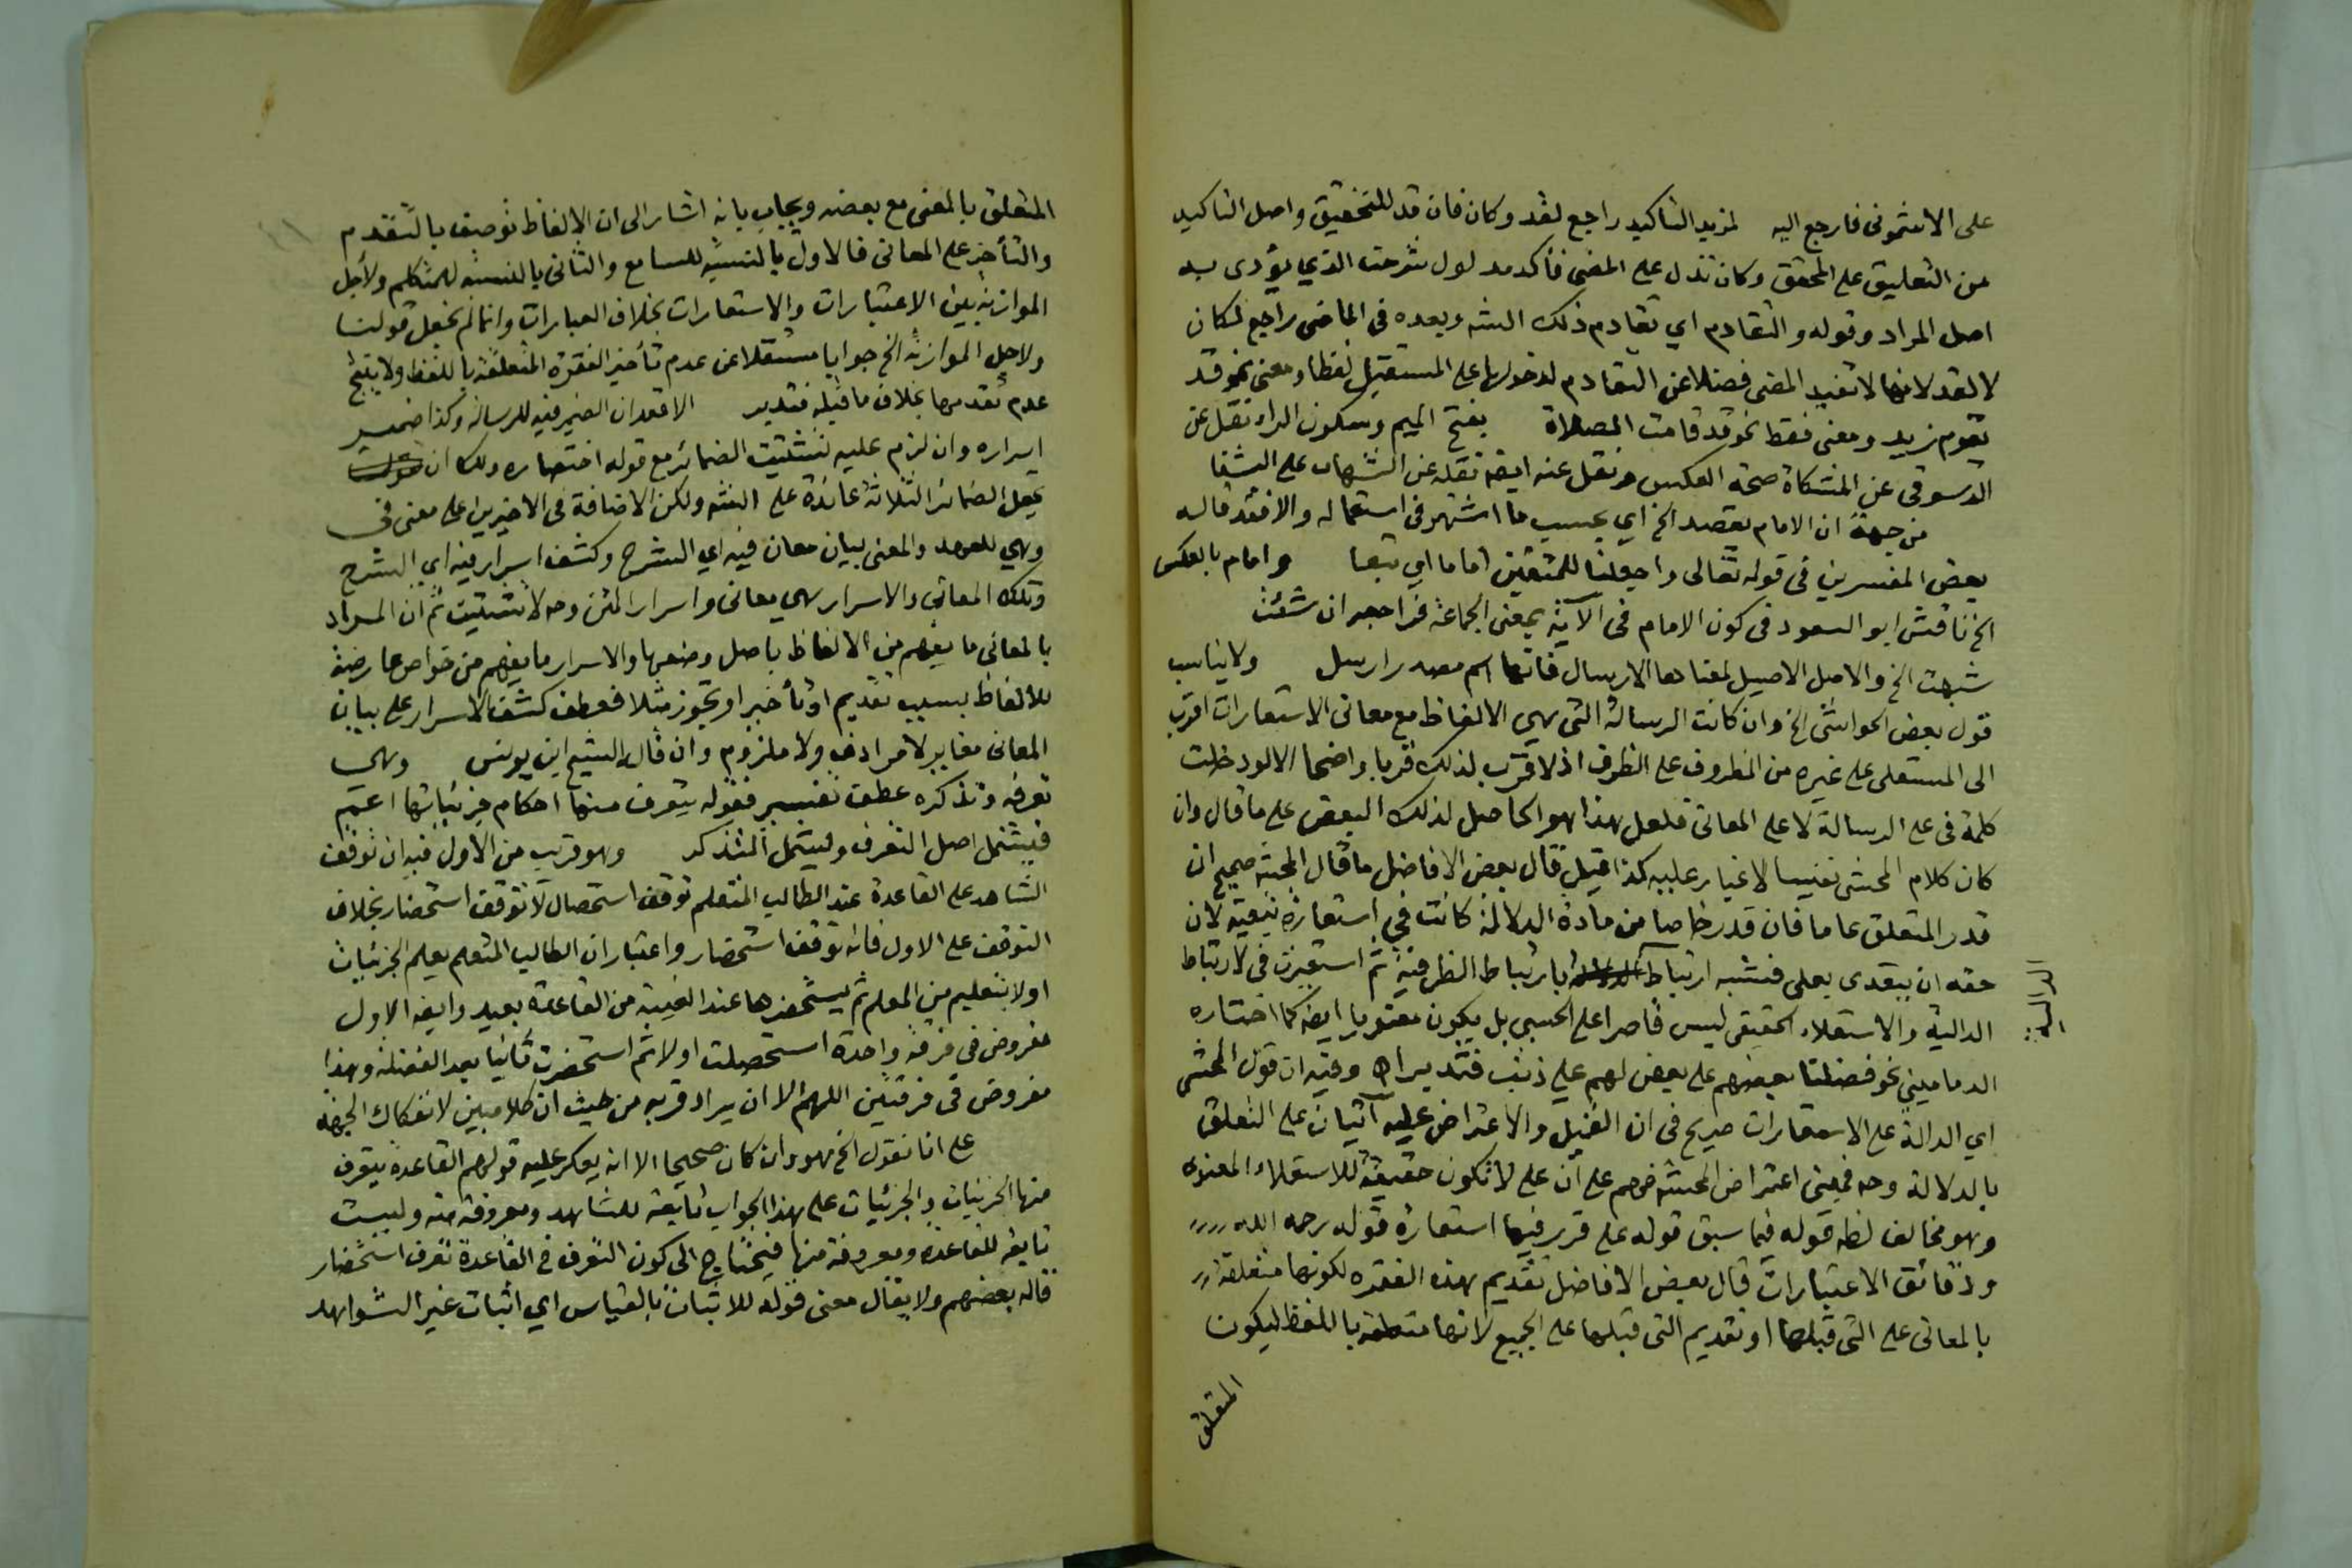 على الاشموني فارجع اليه لمزيد التاكيد راجع لقد وكان فان قد للتحقيق واصل التاكيد
من التعليق على المحقق وكان تدل على المضي فأكد مدلول شرحت الذي يؤدى به
اصل المراد وقوله والتقادم اي تقادم ذلك الشئ وبعده في الماضي راجع لكان
لا لقد لانها لا تفيد المضي فضلا عن التقادم لدخولها على المستقبل لفظا ومعنى نحو قد
يقوم زيد ومعنى فقط نحو قد قامت الصلاة بفتح الميم وسكون الراء نقل عن
الدسوقي عن المشكاة صحة العكس ونقل عنه ايضا نقله عن الشهاب على الشفا
من جهة ان الامام يقصد الخ اي بحسب ما اشتهر في استعماله والا فقد قال
بعض المفسرين في قوله تعالى واجعلنا للمتقين اماما اي تبعا وامام بالعكس
الخ ناقش ابو السعود في كون الامام في الآية بمعنى الجماعة فراجعه ان شئت
شبهت الخ والاصل الاصيل لمعناها الارسال فانها اسم مصدر ارسل ولا يناسب
قول بعض الحواشي الخ وان كانت الرسالة التي هي الالفاظ مع معاني الاستعارات اقرب
الى المستعلى على غيره من المظروف على الظرف اذ لا قرب لذلك قربا واضحا الا لو دخلت
كلمة في على الرسالة لا على المعاني فلعل هذا هو الحاصل لذلك البعض على ما قال وان
كان كلام المحشي نفيسا لا غبار عليه كذا قيل قال بعض الافاضل ما قال المحشي صحيح ان
قدر المتعلق عاما فان قدر خاصا من مادة الدلالة كانت في استعارة تبعية لان
حقه ان يتعدى بعلى فشبه ارتباط بارتباط الظرفية ثم استعيرت في لارتباط
الدالية والاستعلاء الحقيقي ليس قاصرا على الحسي بل يكون معنويا ايضا كما اختاره
الدماميني نحو فضلنا بعضهم على بعض لهم علي ذنب فتدبر اه وفيه ان قول المحشي
اي الدالة على الاستعارات صريح في ان القيل والاعتراض عليه آتيان على التعلق
بالدلالة وحه فمبنى اعتراض المحشي ضهم على ان على لا تكون حقيقة للاستعلاء المعنوى
وهو مخالف لظه قوله فيما سبق قوله على قرر فيها استعارة قوله رحمه الله
ودقائق الاعتبارات قال بعض الافاضل تقديم هذه الفقرة لكونها متعلقة
بالمعاني على التي قبلها او تقديم التي قبلها على الجميع لانها متعلقة باللفظ ليكون
المتعلق
المتعلق بالمعنى مع بعضه ويجاب بانه اشار الى ان الالفاظ توصف بالتقدم
والتأخر على المعاني فالاول بالنسبة للسامع والثاني بالنسبة للمتكلم ولأجل
الموازنة بين الاعتبارات والاستعارات بخلاف العبارات وانما لم نجعل قولنا
ولاجل الموازنة الخ جوابا مستقلا عن عدم تأخير الفقرة المتعلقة باللفظ ولا ينتج
عدم تقدمها بخلاف ما قبله فتدبر الا قعد ان الضمير فيه للرسالة وكذا ضمير
اسراره وان لزم عليه تشتيت الضمائر مع قوله اختصاره ولك ان
تجعل الضمائر الثلاثة عائدة على الشئ ولكن الاضافة في الاخيرين على معنى في
وهي للعهد والمعنى لبيان معان فيه اي الشرح وكشف اسرار فيه اي الشرح
وتلك المعاني والاسرار هي معاني واسرار المتن وحه لا تشتيت ثم ان المراد
بالمعاني ما يفهم من الالفاظ باصل وضعها والاسرار ما يفهم من خواص عارضة
للالفاظ بسبب تقديم او تأخير او تجوز مثلا فعطف كشف الاسرار على بيان
المعاني مغاير لا مرادف ولا ملزوم وان قال الشيخ ابن يونس وهي
تعرفه وتذكره عطف تفسير فقوله يتعرف منها احكام جزئياتها اعم
فيشمل اصل التعرف ويشمل التذكر وهو قريب من الاول فيه ان توقف
الشاهد على القاعدة عند الطالب المتعلم توقف استحصال لا توقف استحضار بخلاف
التوقف على الاول فانه توقف استحضار واعتبار ان الطالب المتعلم يعلم الجزئيات
اولا بتعليم من المعلم ثم يستحضرها عند الغيبة من القاعدة بعيد وايضا الاول
مفروض في فرقة واحدة استحصلت اولا ثم استحضرت ثانيا بعد الغفلة وهذا
مفروض في فرقتين اللهم الا ان يراد قربه من حيث ان كلا مبين لانفكاك الجهة
على انا نقول الخ هو وان كان صحيحا الا انه يعكر عليه قولهم القاعدة يتعرف
منها الجزئيات والجزئيات على هذا الجواب تابعة للشاهد ومعروفة منه وليست
تابعة للقاعدة ومعروفة منها فيحتاج الى كون التعرف في القاعدة تعرف استحضار
قاله بعضهم ولا يقال معنى قوله للاثبات بالقياس اي اثبات غير الشواهد